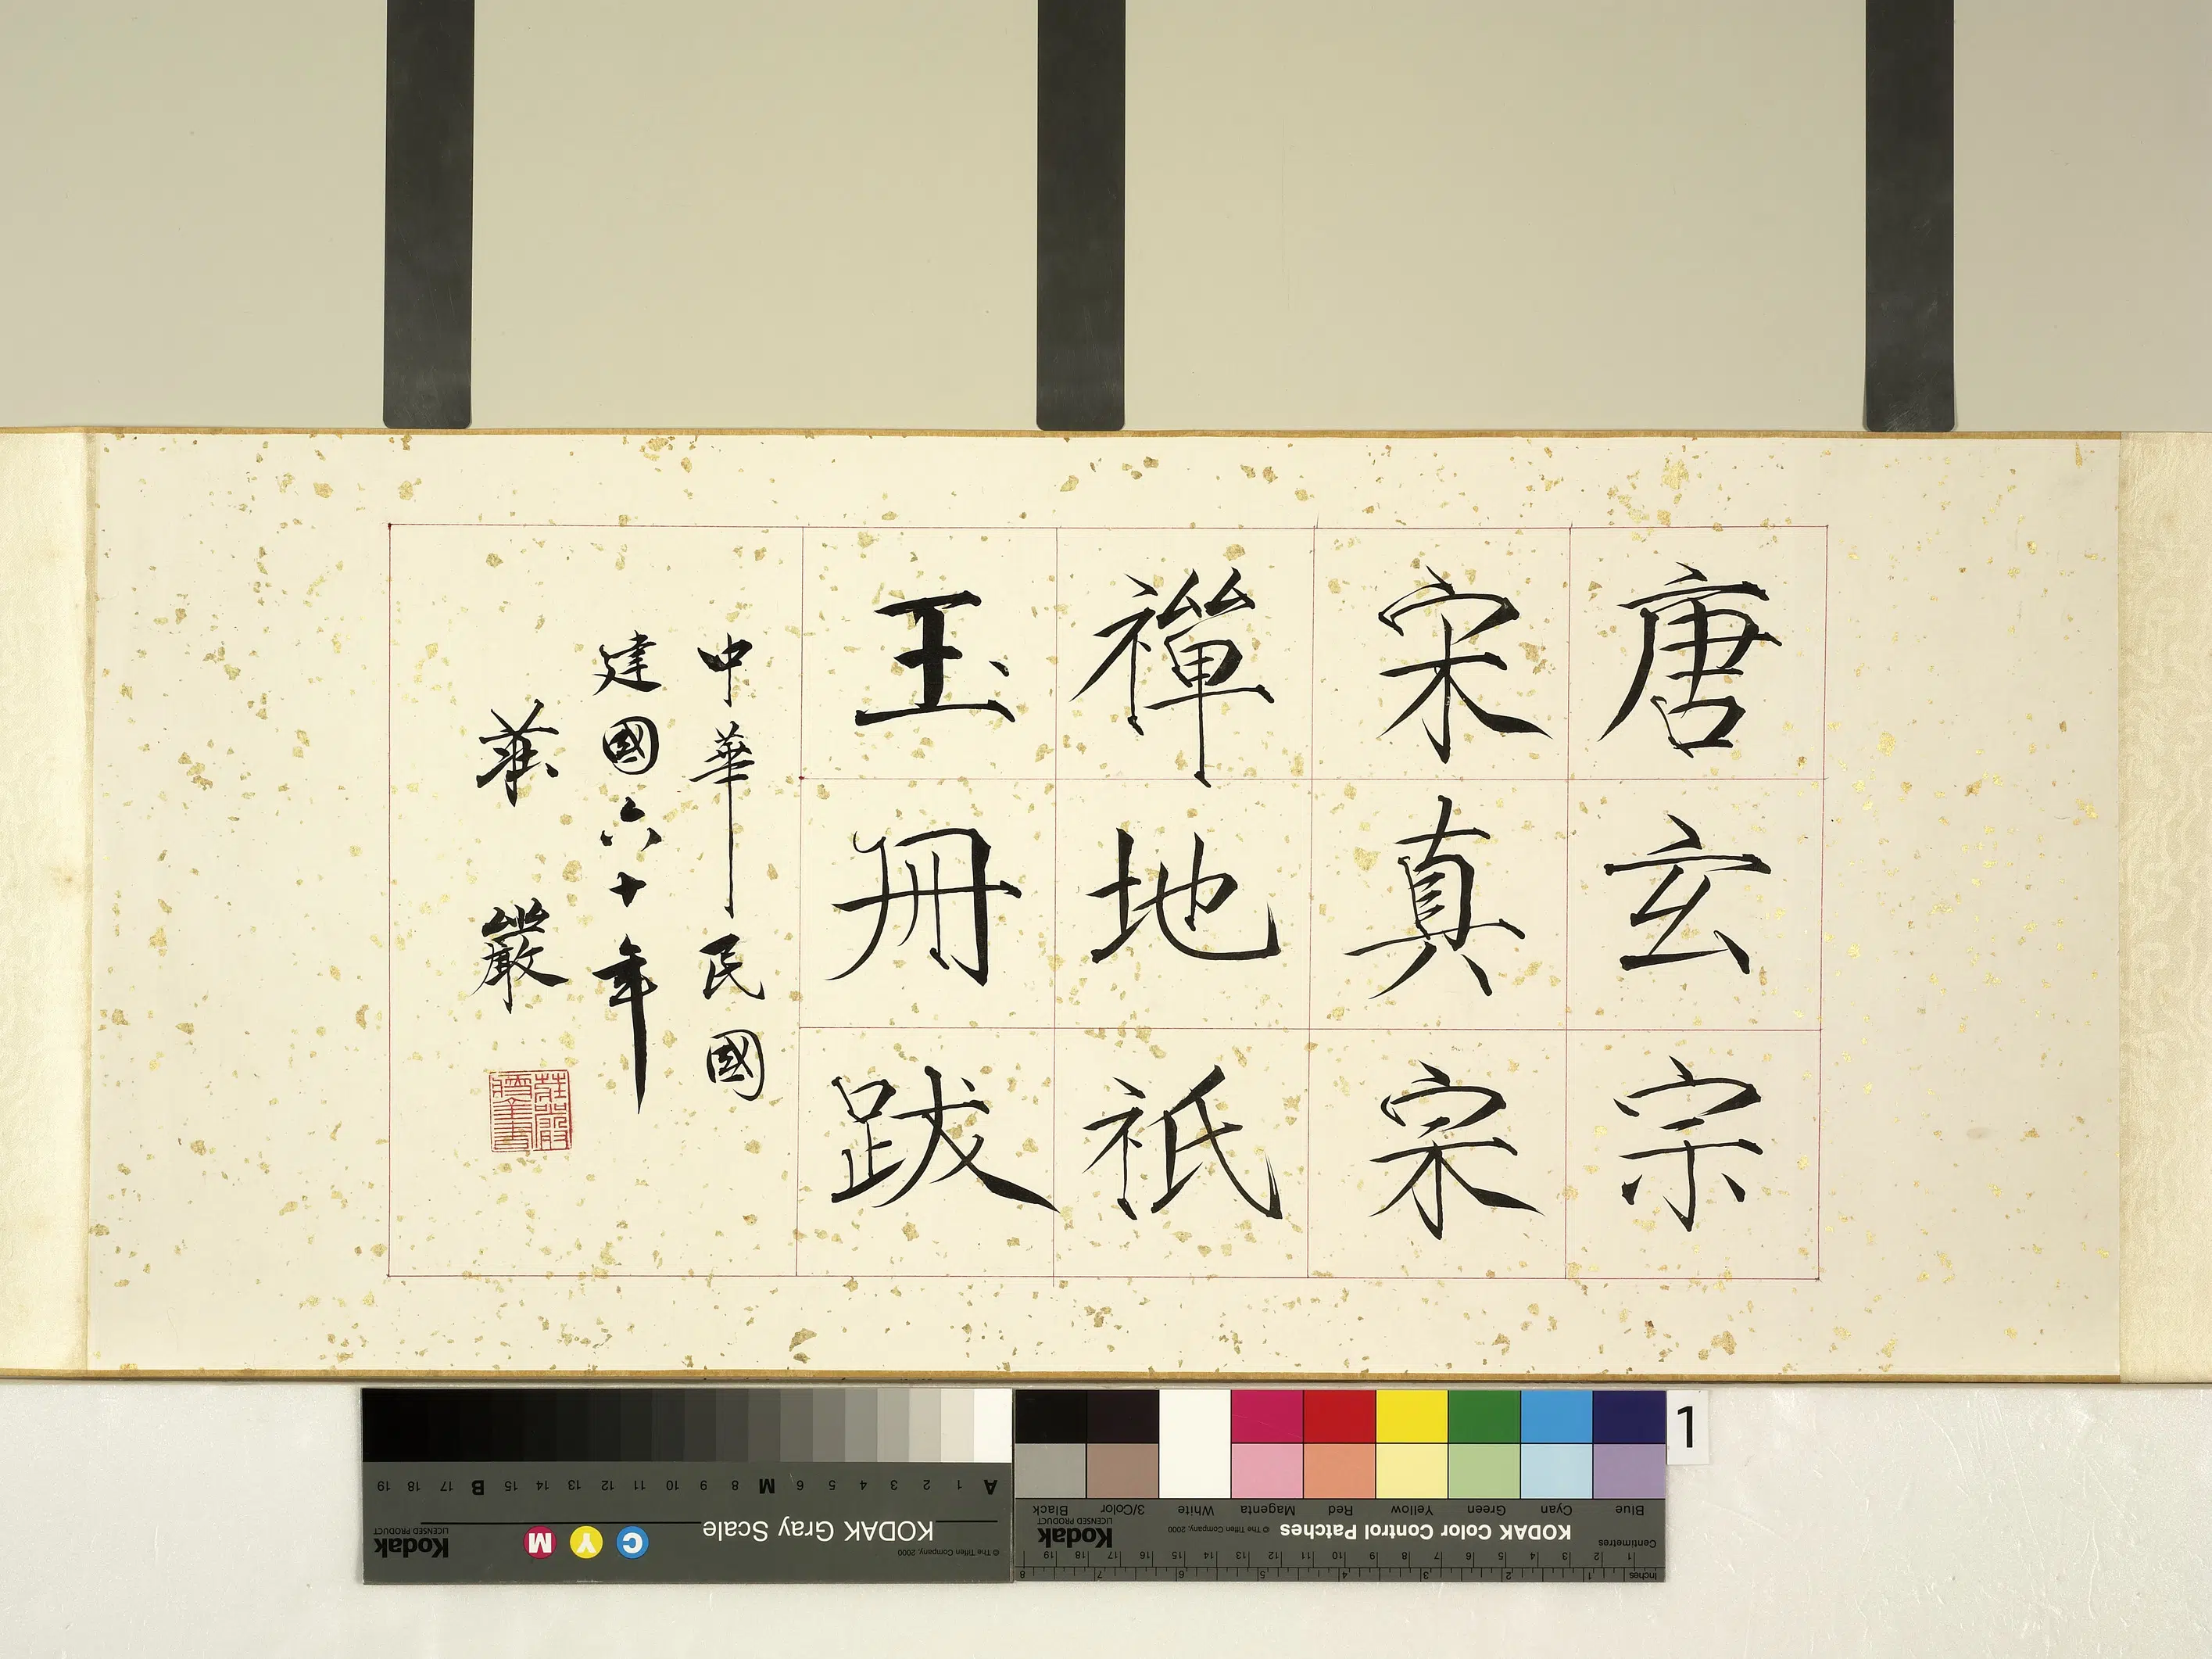 唐玄宗
宋真宗
禪地祇
玉冊跋
中華民國
建國六十年
莊嚴
莊嚴
1
Blue Cyan Green Yellow Red Magenta White 3/Color Black
KODAK Color Control Patches © The Tiffen Company, 2000 Kodak
LICENSED PRODUCT
Centimetres 1 2 3 4 5 6 7 8 9 10 11 12 13 14 15 16 17 18 19
Inches 1 2 3 4 5 6 7 8
A 1 2 3 4 5 6 M 8 9 10 11 12 13 14 15 B 17 18 19
KODAK Gray Scale
© The Tiffen Company, 2000
C Y M
Kodak
LICENSED PRODUCT